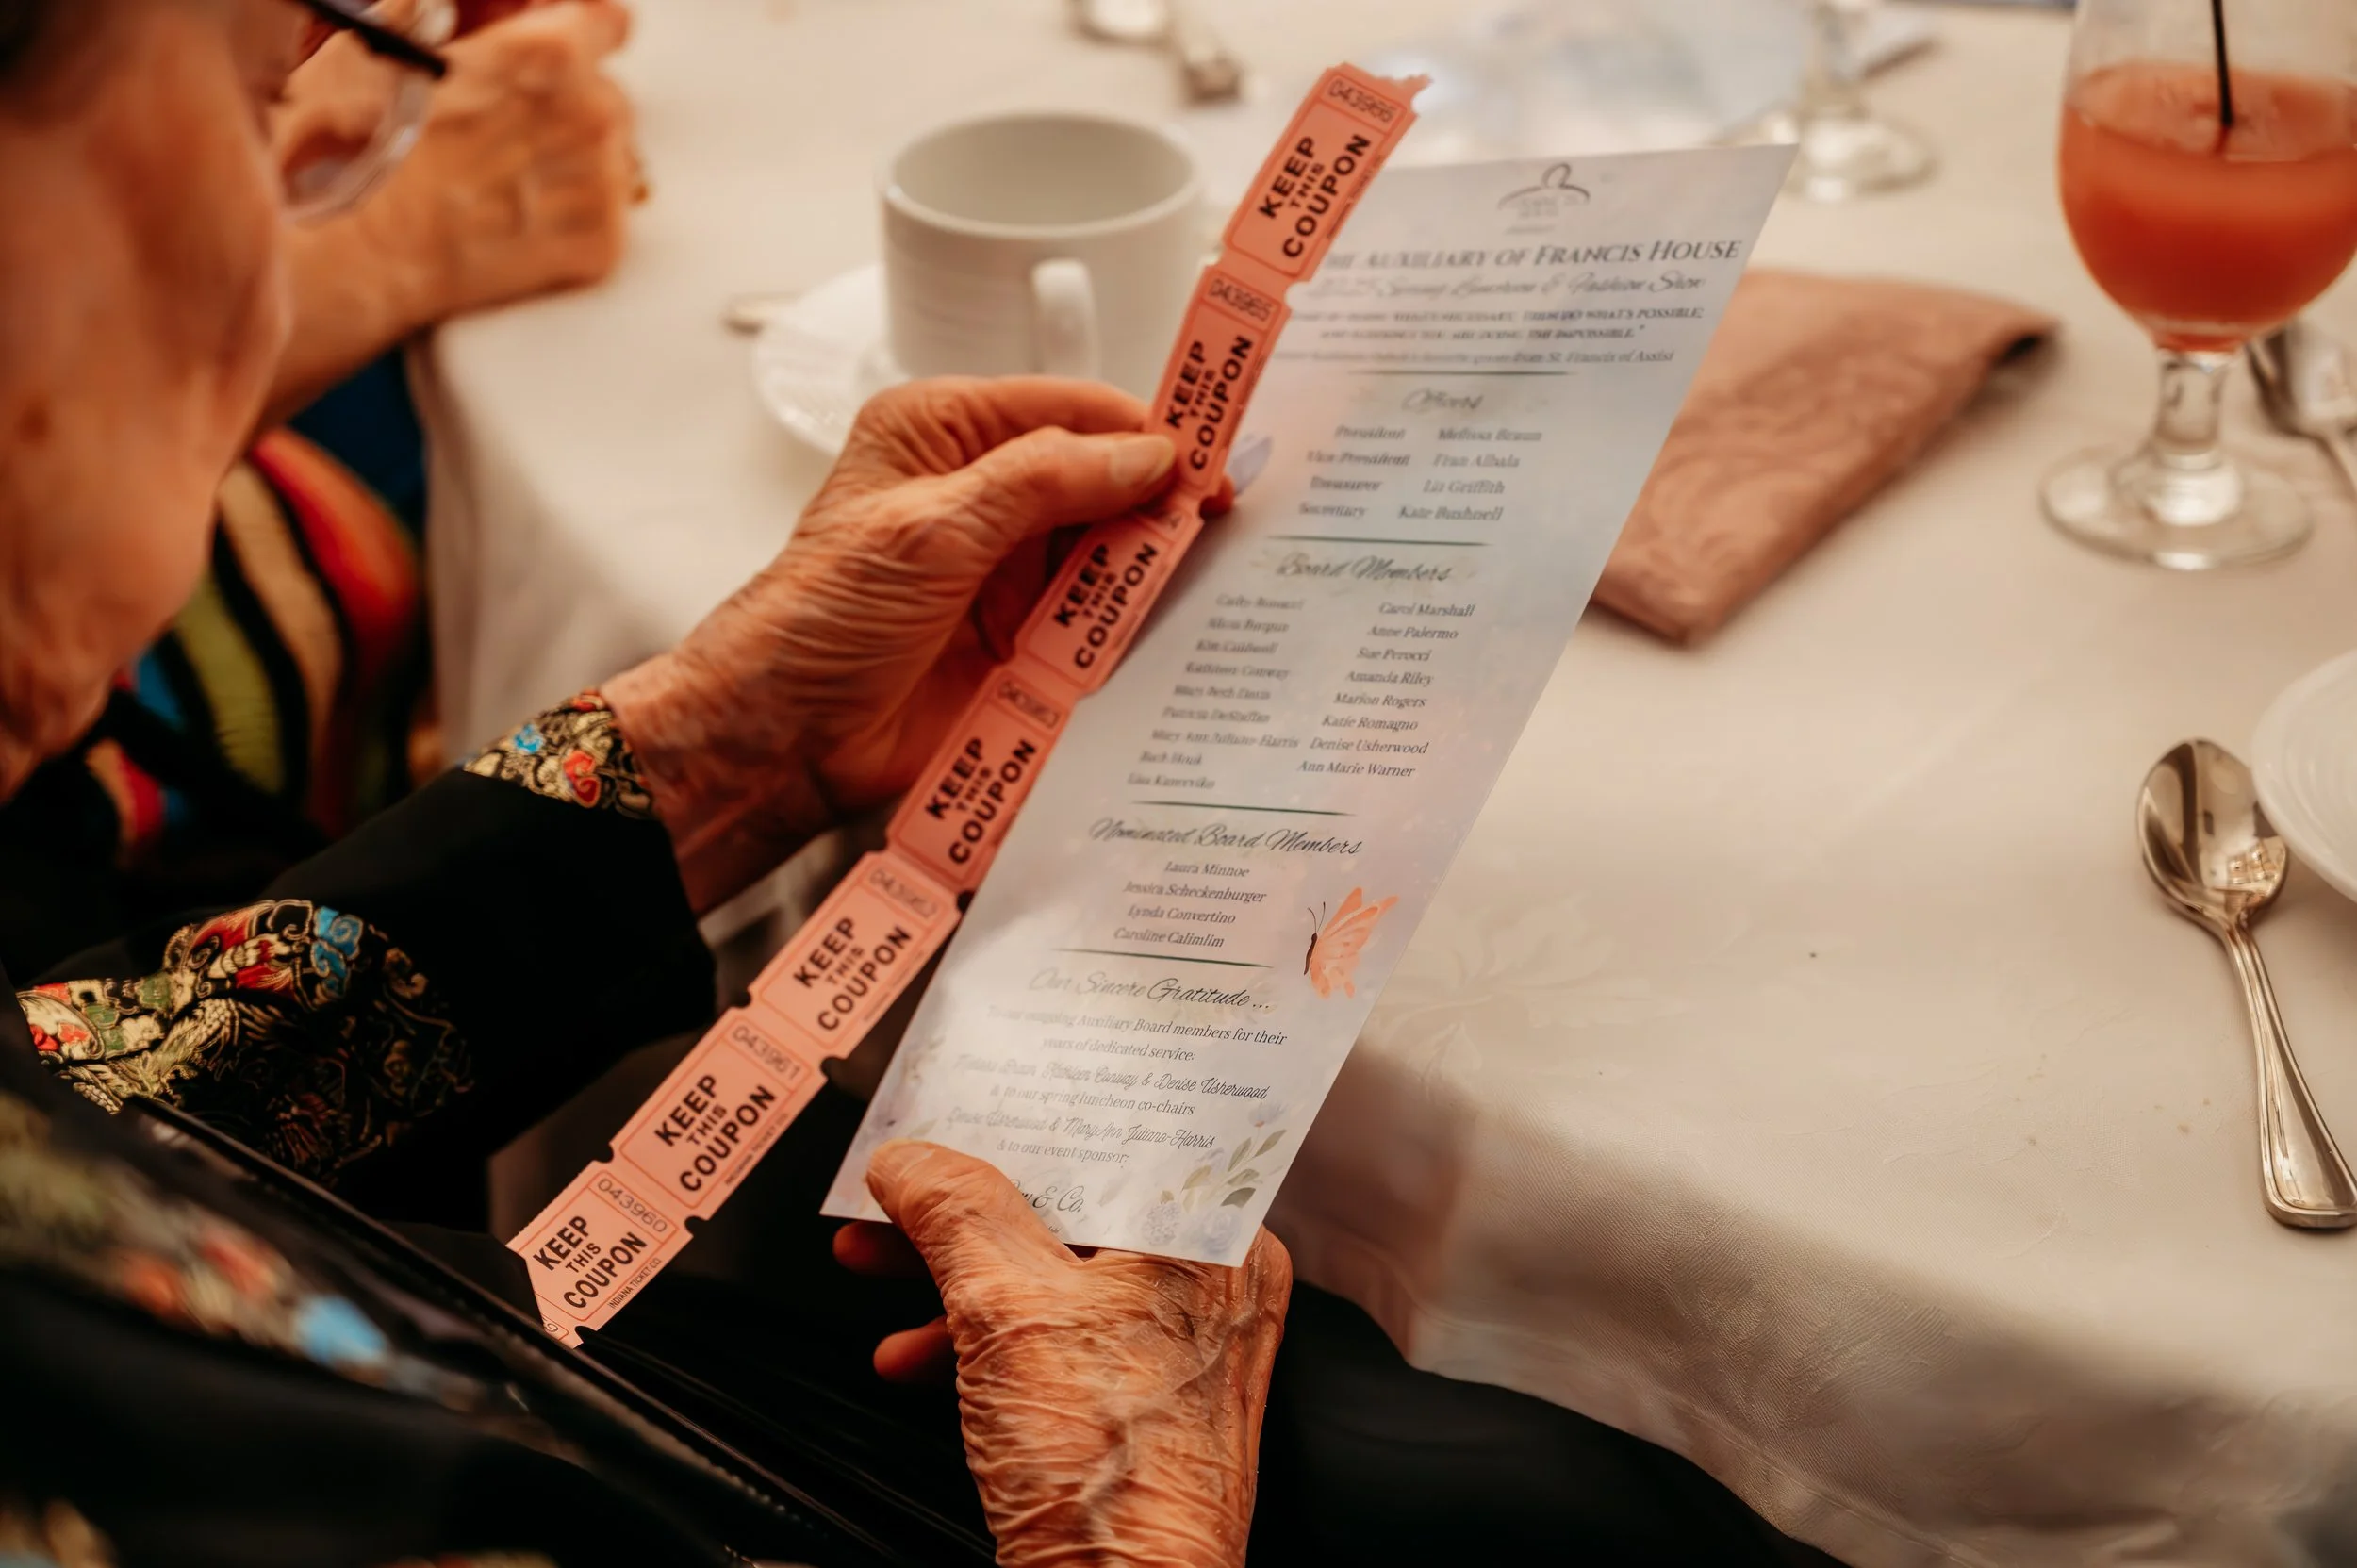 043966
KEEP
THIS
COUPON
043965
KEEP
THIS
COUPON
KEEP
THIS
COUPON
043963
KEEP
THIS
COUPON
043962
KEEP
THIS
COUPON
043961
KEEP
THIS
COUPON
INDIANA TICKET CO.
043960
KEEP
THIS
COUPON
INDIANA TICKET CO.
AUXILIARY OF FRANCIS HOUSE
Spring Luncheon & Fashion Show
THEN DO WHAT'S POSSIBLE;
YOU ARE DOING THE IMPOSSIBLE."
quote from St. Francis of Assisi
Officers
President Melissa Braun
Vice President Fran Albala
Treasurer Liz Griffith
Secretary Kate Bushnell
Board Members
Carol Marshall
Anne Palermo
Kim Caldwell Sue Perocci
Kathleen Conway Amanda Riley
Mary Beth Davis Marion Rogers
Patricia DeStaffan Katie Romagno
Mary Ann Juliano-Harris Denise Usherwood
Barb Houk Ann Marie Warner
Lisa
Nominated Board Members
Laura Minnoe
Jessica Scheckenburger
Lynda Convertino
Caroline Calimlim
Our Sincere Gratitude ...
To our outgoing Auxiliary Board members for their
years of dedicated service:
Melissa Braun, Kathleen Conway & Denise Usherwood
& to our spring luncheon co-chairs
Denise Usherwood & MaryAnn Juliano-Harris
& to our event sponsor:
& Co.